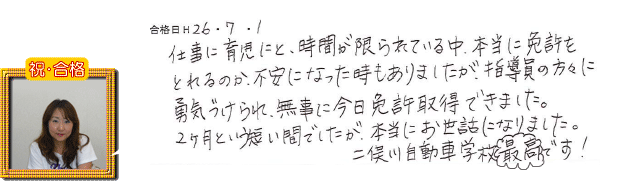 祝・合格
合格日H26・7・1
仕事に育児にと、時間が限られている中、本当に免許を
とれるのか、不安になった時もありましたが、指導員の方々に
勇気づけられ、無事に今日免許取得できました。
2ヶ月という短い間でしたが、本当にお世話になりました。
二俣川自動車学校最高です!